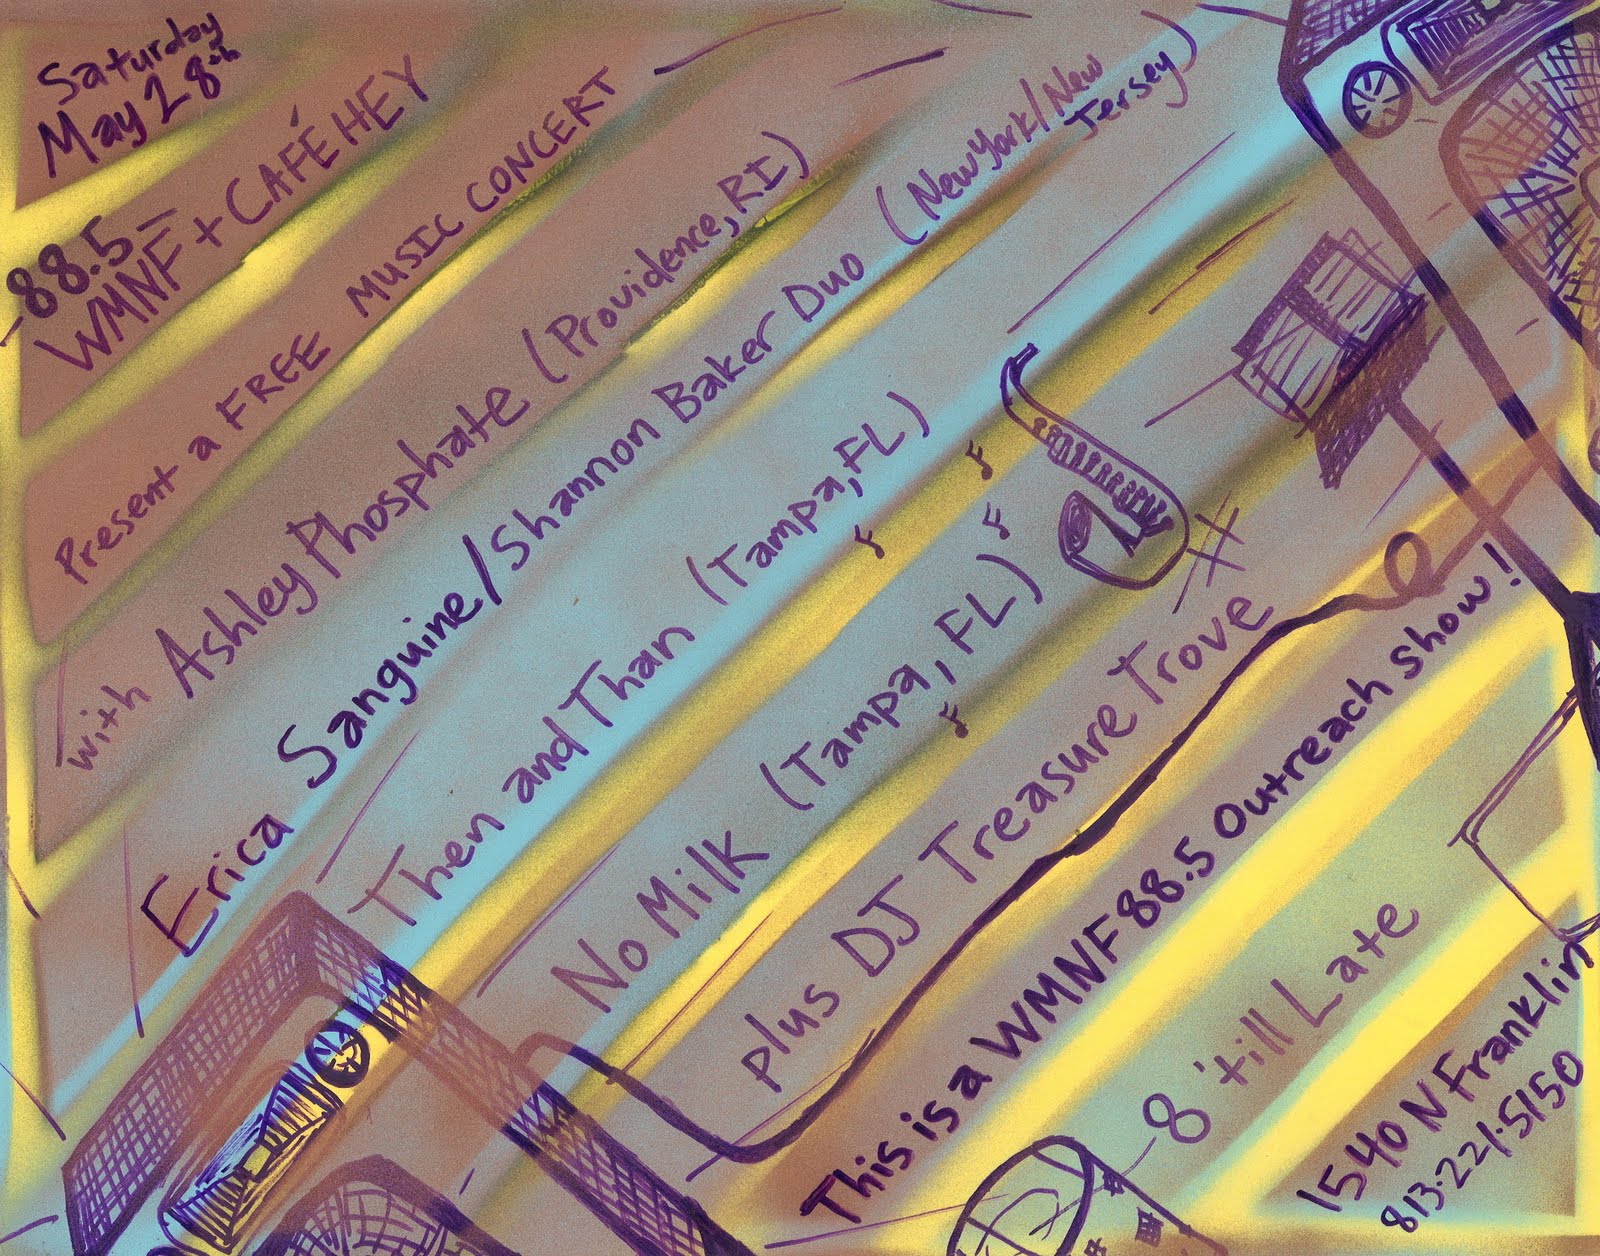 Saturday
May 28th
88.5
WMNF + CAFÉ HEY
Present a FREE MUSIC CONCERT
with Ashley Phosphate (Providence, RI)
Erica Sanguine/Shannon Baker Duo (New York/New Jersey)
Then and Than (Tampa, FL)
No Milk (Tampa, FL)
plus DJ Treasure Trove
This is a WMNF 88.5 Outreach Show!
8 'till Late
1540 N Franklin
813·221·5150